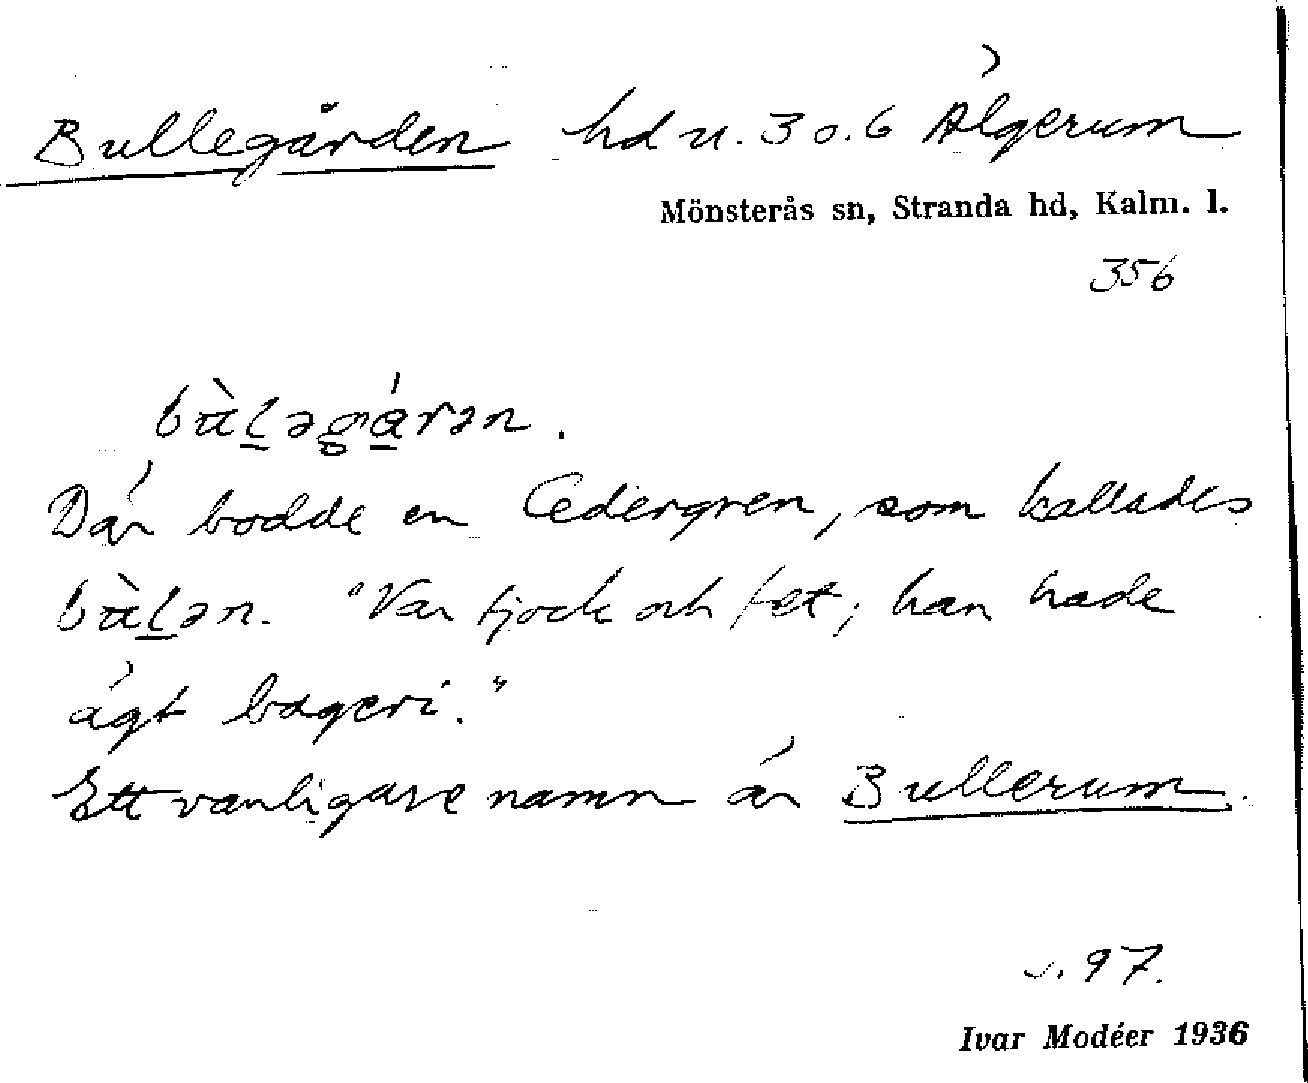 Bullegården hd u. 3 o. 6 Älgerum
Mönsterås sn, Stranda hd, Kalm. l.
356
bùlegárən.
Där bodde en Cedergren, som kallades
bùlən. "Var tjock och fet, han hade
ägt bageri."
Ett vanligare namn är Bullerum.
s. 97.
Ivar Modéer 1936